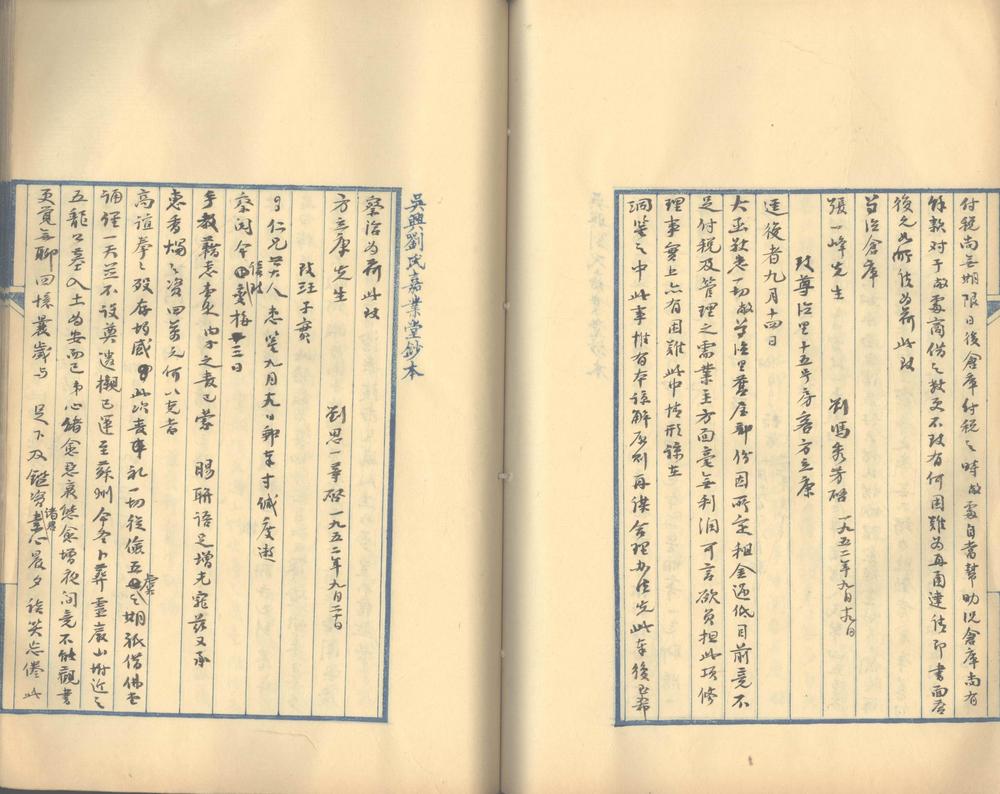 付稅尚無期限日後倉庫付稅之時敝處自當幫助況倉庫尚有
餘款對于敝處商借之數更不致有何困難為再函達請即書面答
復允為所請為荷此致
誼倉庫
張一峰先生 劉馮秀芳啟 一九五二年九月十九日
致尊德里十五号房客方立庸
逕復者九月十四日
大函敬悉一切敝尊德里舊屋部份因所定租金過低目前竟不
足付稅及管理之需業主方面毫無利潤可言欲負担此項修
理事實上亦有困難此中情形諒在
洞鑒之中此事惟有本諒解原則再樸合理办法先此奉復至希
吳興劉氏嘉業堂鈔本
察洽為荷此致
方立庸先生 劉思一華啟 一九五二年九月二十日
致汪子賓
仁兄大人 惠鑒九月十九日郵奉寸緘度邀
詧閱今接誦 三日
手教藉悉壹是內子之喪已蒙 賜聯語足增光寵茲又承
惠香燭之資四萬元何以克當
高誼拳拳歿存均感此次喪事禮一切從儉五虞之期祇借佛堂
誦經一天並不設奠遺櫬已運至蘇州今冬卜葬靈巖山附近之
五龍公墓入土為安而已弟心緒愈惡衰態愈增夜間竟不能觀書
更覺無聊回憶曩歲与 足下及 諸君晨夕 談笑忘倦此